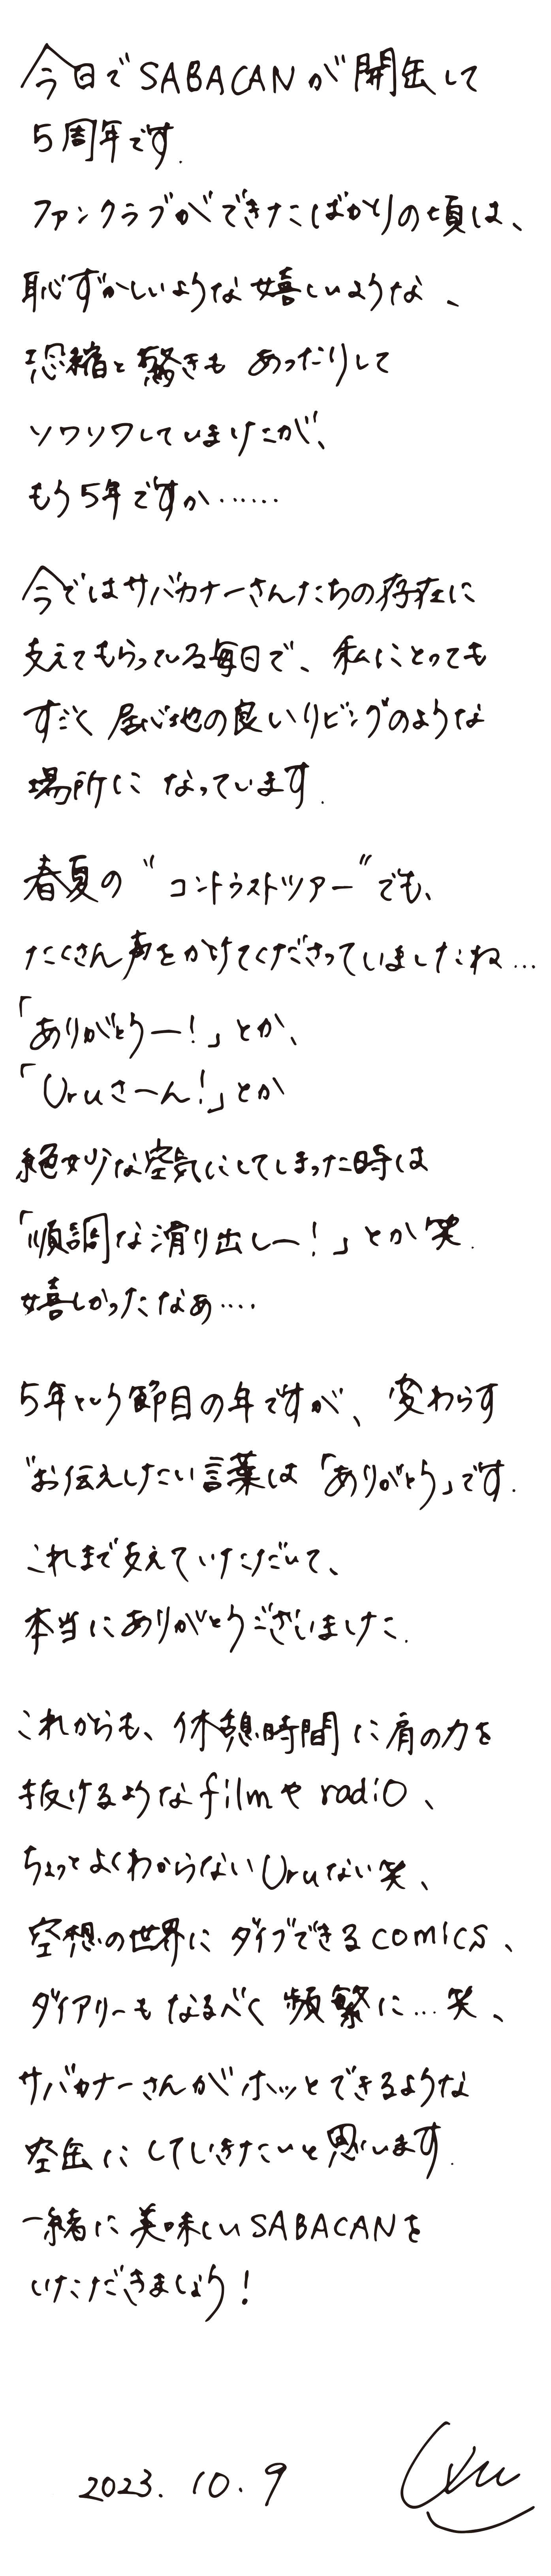 今日でSABACANが開缶して
5周年です.
ファンクラブができたばかりの頃は、
恥ずかしいような嬉しいような、
恐縮と驚きも あったりして
ソワソワしていましたが、
もう5年ですか……
今ではサバカナーさんたちの存在に
支えてもらっている毎日で、私にとっても
すごく居心地の良いリビングのような
場所に なっています.
春夏の“コントラストツアー”でも、
たくさん声をかけてくださっていましたね…
「ありがとうー!」とか、
「Uruさーん!」とか
絶妙な空気にしてしまった時は
「順調な滑り出しー!」とか笑.
嬉しかったなぁ….
5年という節目の年ですが、変わらず
お伝えしたい言葉は「ありがとう」です.
これまで支えていただいて、
本当にありがとうございました.
これからも、休憩時間に肩の力を
抜けるようなfilmやradio、
ちょっとよくわからないUruない笑、
空想の世界にダイブできるcomics、
ダイアリーもなるべく頻繁に…笑、
サバカナーさんがホッとできるような
空缶にしていきたいと思います.
一緒に美味しいSABACANを
いただきましょう!
2023. 10. 9
Uru